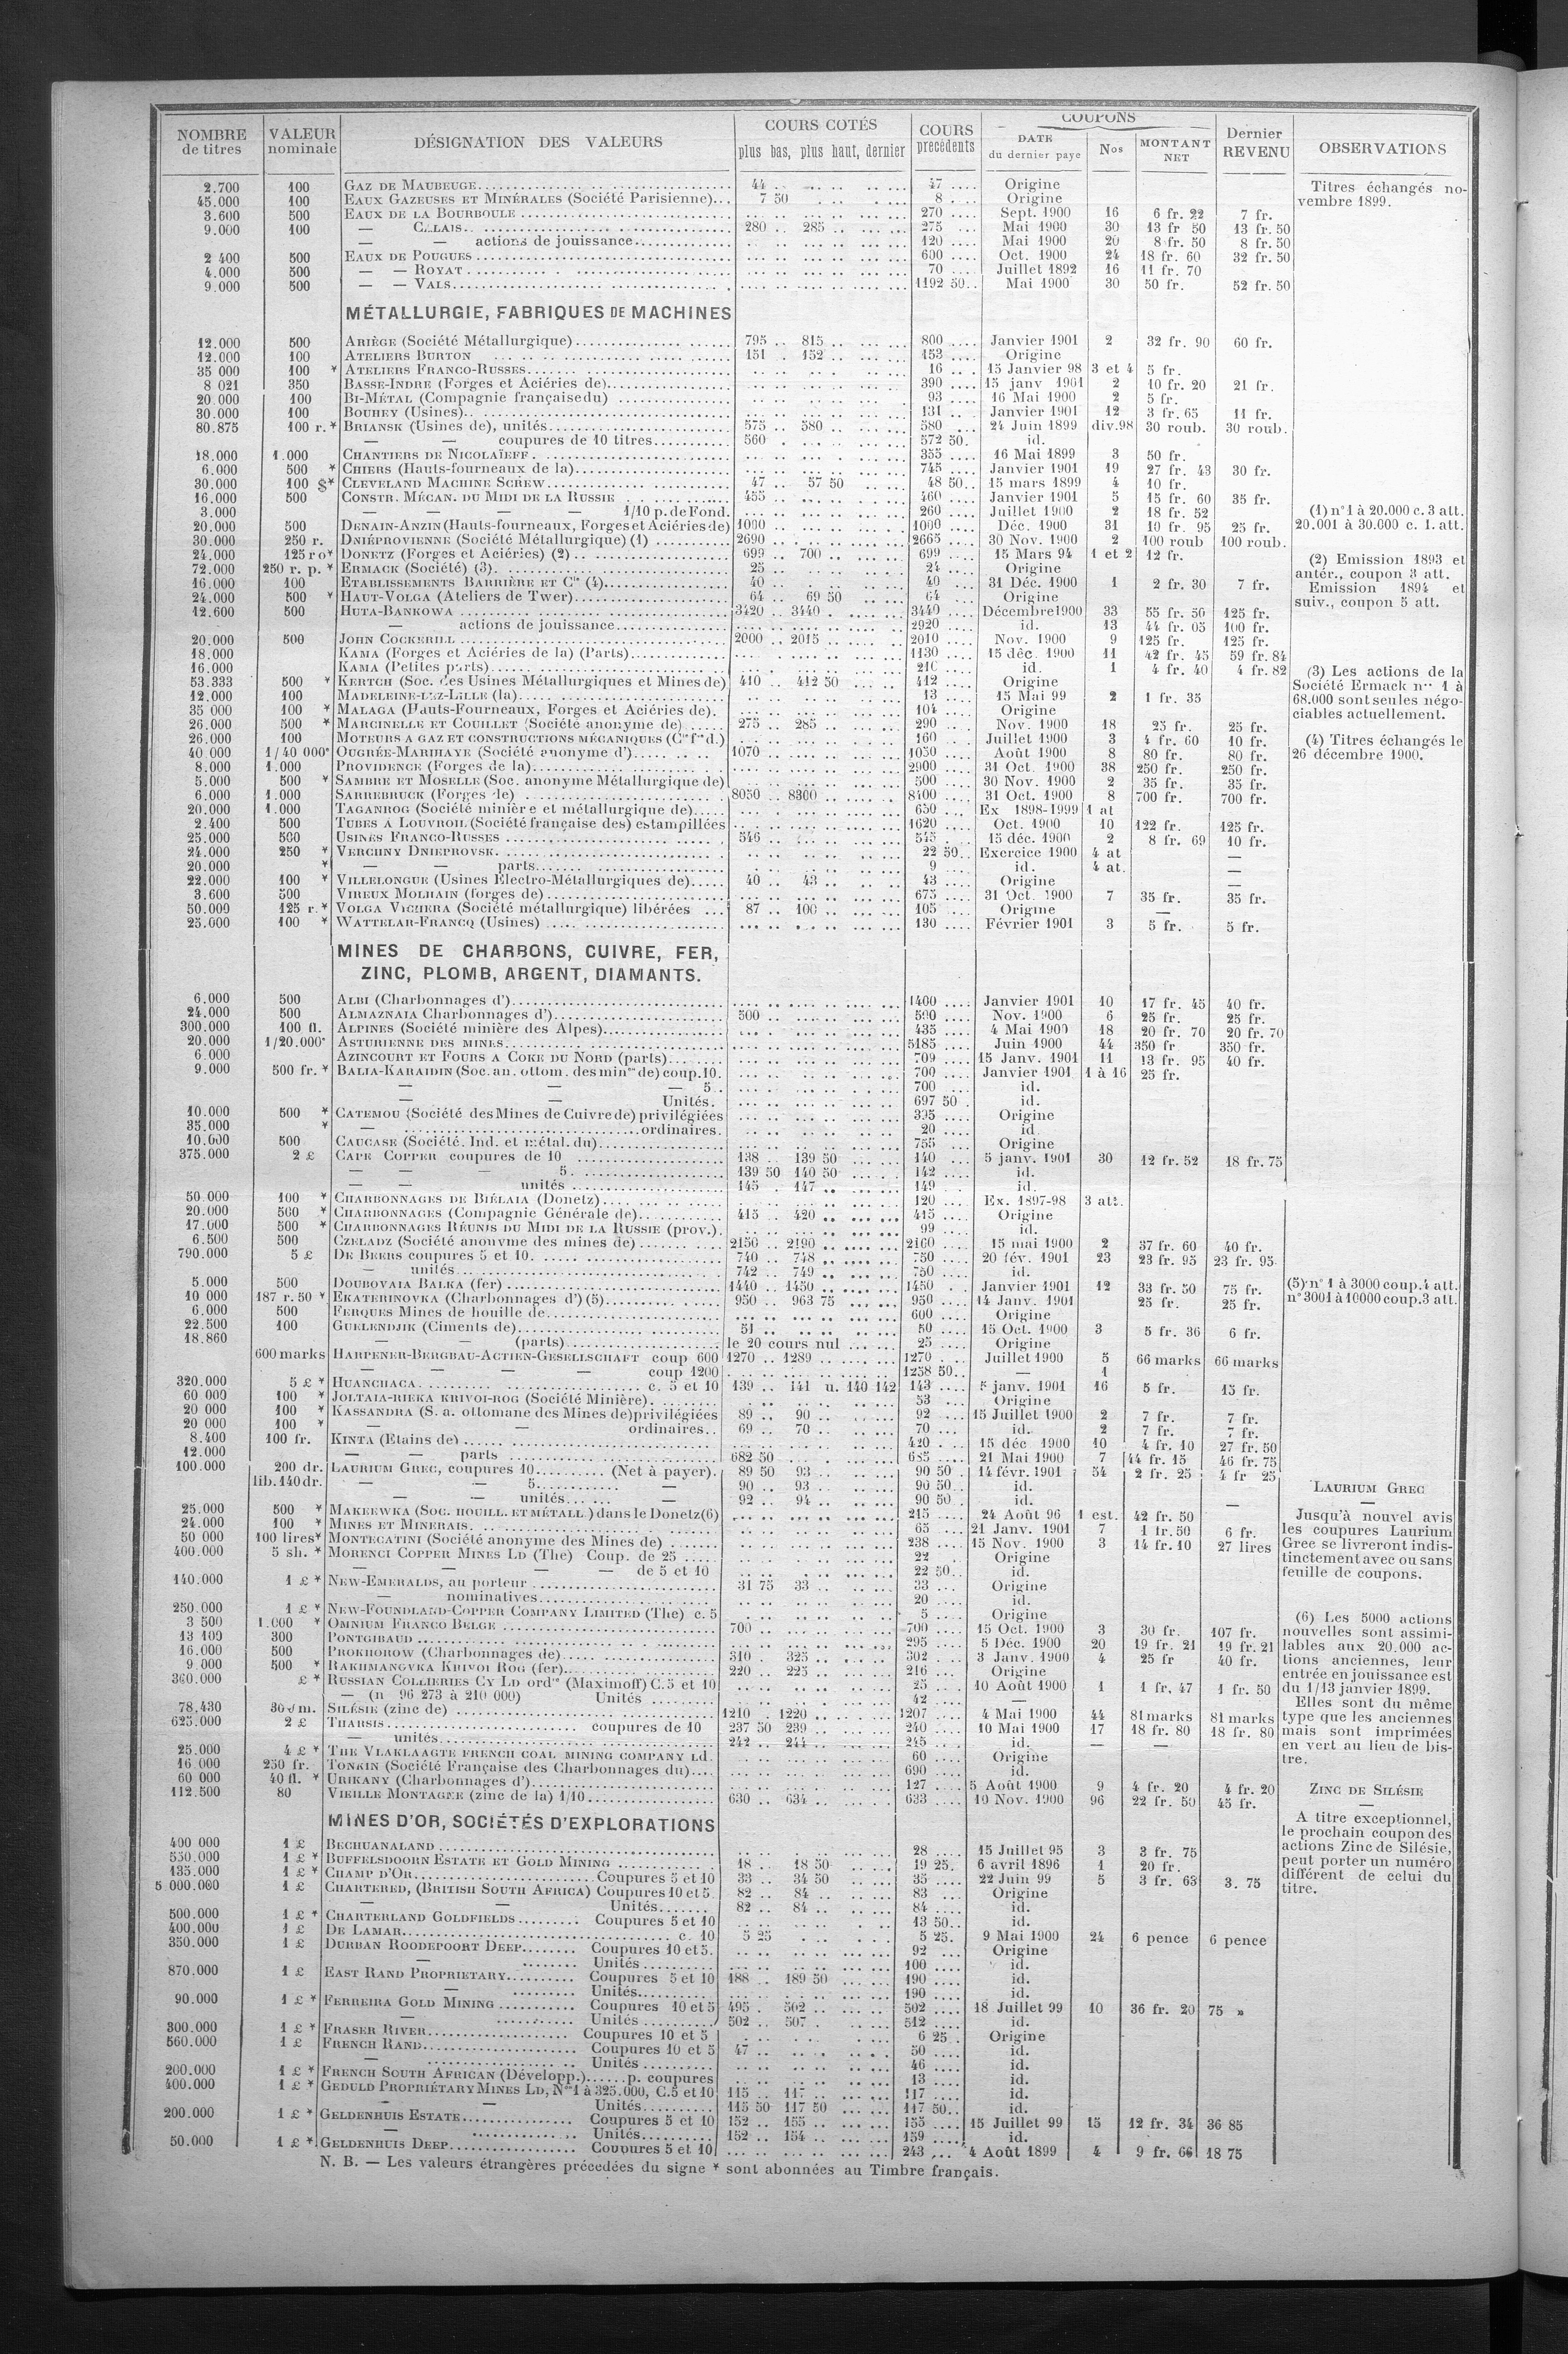 NOMBRE de titres | VALEUR nominale | DÉSIGNATION DES VALEURS | COURS COTÉS plus bas, plus haut, dernier | COURS précédents | COUPONS DATE du dernier paye | Nos | MONTANT NET | Dernier REVENU | OBSERVATIONS
2.700 100 GAZ DE MAUBEUGE 44 47 Origine
45.000 100 EAUX GAZEUSES ET MINÉRALES (Société Parisienne) 7 50 8 Origine
3.600 500 EAUX DE LA BOURBOULE 270 Sept. 1900 16 6 fr. 22 7 fr.
9.000 100 — 280 285 275 Mai 1900 30 13 fr 50 13 fr. 50
— — actions de jouissance 120 Mai 1900 20 8 fr. 50 8 fr. 50
2 400 500 EAUX DE POUGUES 600 Oct. 1900 24 18 fr. 60 32 fr. 50
4.000 500 — — ROYAT 70 Juillet 1892 16 11 fr. 70
9.000 500 — — VALS 1192 50 Mai 1900 30 50 fr. 52 fr. 50
Titres échangés no-
vembre 1899.
MÉTALLURGIE, FABRIQUES DE MACHINES
12.000 500 ARIÈGE (Société Métallurgique) 795 815 800 Janvier 1901 2 32 fr. 90 60 fr.
12.000 100 ATELIERS BURTON 151 152 153 Origine
35 000 100 * ATELIERS FRANCO-RUSSES 16 15 Janvier 98 3 et 4 5 fr.
8 021 350 BASSE-INDRE (Forges et Aciéries de) 390 15 janv 1901 2 10 fr. 20 21 fr.
20.000 100 BI-MÉTAL (Compagnie française du) 93 16 Mai 1900 2 5 fr.
30.000 100 BOUHEY (Usines) 131 Janvier 1901 12 3 fr. 65 11 fr.
80.875 100 r. * BRIANSK (Usines de), unités 575 580 580 24 Juin 1899 div.98 30 roub. 30 roub.
— — coupures de 10 titres 560 572 50 id.
18.000 1.000 CHANTIERS DE NICOLAÏEFF 355 16 Mai 1899 3 50 fr.
6.000 500 * CHIERS (Hauts-fourneaux de la) 745 Janvier 1901 19 27 fr. 43 30 fr.
30.000 100 $* CLEVELAND MACHINE SCREW 47 57 50 48 50 15 mars 1899 4 10 fr.
16.000 500 CONSTR. MÉCAN. DU MIDI DE LA RUSSIE 455 460 Janvier 1901 5 15 fr. 60 35 fr.
3.000 — — — — 1/10 p. de Fond. 260 Juillet 1900 2 18 fr. 52
20.000 500 DENAIN-ANZIN (Hauts-fourneaux, Forges et Aciéries de) 1000 1000 Déc. 1900 31 10 fr. 95 25 fr.
30.000 250 r. DNIÉPROVIENNE (Société Métallurgique) (1) 2690 2665 30 Nov. 1900 2 100 roub 100 roub.
24.000 125 ro* DONETZ (Forges et Aciéries) (2) 699 700 699 15 Mars 94 1 et 2 12 fr.
72.000 250 r. p. * ERMACK (Société) (3) 25 24 Origine
16.000 100 ETABLISSEMENTS BARRIÈRE ET Cie (4) 40 40 31 Déc. 1900 1 2 fr. 30 7 fr.
24.000 500 * HAUT-VOLGA (Ateliers de Twer) 64 69 50 64 Origine
12.600 500 HUTA-BANKOWA 3420 3440 3440 Décembre1900 33 55 fr. 50 125 fr.
— actions de jouissance 2920 id. 13 44 fr. 05 100 fr.
20.000 500 JOHN COCKERILL 2000 2015 2010 Nov. 1900 9 125 fr. 125 fr.
18.000 KAMA (Forges et Aciéries de la) (Parts) 1130 15 déc. 1900 11 42 fr. 45 59 fr. 84
16.000 KAMA (Petites parts) 210 id. 1 4 fr. 40 4 fr. 82
53.333 500 * KERTCH (Soc. des Usines Métallurgiques et Mines de) 410 412 50 412 Origine
12.000 100 MADELEINE-LEZ-LILLE (la) 13 15 Mai 99 2 1 fr. 35
35 000 100 * MALAGA (Hauts-Fourneaux, Forges et Aciéries de). 104 Origine
26.000 500 * MARCINELLE ET COUILLET (Société anonyme de) 275 285 290 Nov. 1900 18 25 fr. 25 fr.
26.000 100 MOTEURS A GAZ ET CONSTRUCTIONS MÉCANIQUES (Cie fse d.) 160 Juillet 1900 3 4 fr. 60 10 fr.
40 000 1/40 000e OUGRÉE-MARIHAYE (Société anonyme d') 1070 1050 Août 1900 8 80 fr. 80 fr.
8.000 1.000 PROVIDENCE (Forges de la) 2900 31 Oct. 1900 38 250 fr. 250 fr.
5.000 500 * SAMBRE ET MOSELLE (Soc. anonyme Métallurgique de) 500 30 Nov. 1900 2 35 fr. 35 fr.
6.000 1.000 SARREBRUCK (Forges de) 8050 8300 8400 31 Oct. 1900 8 700 fr. 700 fr.
20.000 1.000 TAGANROG (Société minière et métallurgique de) 650 Ex 1898-1999 1 at
2.400 500 TUBES A LOUVROIL (Société française des) estampillées 1620 Oct. 1900 10 122 fr. 125 fr.
25.000 500 USINES FRANCO-RUSSES 546 545 15 déc. 1900 2 8 fr. 69 10 fr.
24.000 250 * VERCHNY DNIEPROVSK 22 50 Exercice 1900 4 at —
20.000 * — — parts 9 id. 4 at. —
22.000 100 * VILLELONGUE (Usines Électro-Métallurgiques de) 40 43 43 Origine —
3.600 500 VIREUX MOLHAIN (forges de) 675 31 Oct. 1900 7 35 fr. 35 fr.
50.000 125 r. * VOLGA VICHERA (Société métallurgique) libérées 87 100 105 Origine —
25.000 100 * WATTELAR-FRANCQ (Usines) 130 Février 1901 3 5 fr. 5 fr.
(1) n° 1 à 20.000 c. 3 att.
20.001 à 30.000 c. 1. att.
(2) Emission 1893 et
antér., coupon 3 att.
Emission 1894 et
suiv., coupon 5 att.
(3) Les actions de la
Société Ermack nos 1 à
68.000 sont seules négo-
ciables actuellement.
(4) Titres échangés le
26 décembre 1900.
MINES DE CHARBONS, CUIVRE, FER,
ZINC, PLOMB, ARGENT, DIAMANTS.
6.000 500 ALBI (Charbonnages d') 1400 Janvier 1901 10 17 fr. 45 40 fr.
24.000 500 ALMAZNAIA Charbonnages d') 500 500 Nov. 1900 6 25 fr. 25 fr.
300.000 100 fl. ALPINES (Société minière des Alpes) 435 4 Mai 1900 18 20 fr. 70 20 fr. 70
20.000 1/20.000e ASTURIENNE DES MINES 5185 Juin 1900 44 350 fr 350 fr.
6 000 AZINCOURT ET FOURS A COKE DU NORD (parts) 709 15 Janv. 1901 11 13 fr. 95 40 fr.
9.000 500 fr. * BALIA-KARAIDIN (Soc. an. ottom. des mines de) coup. 10. 700 Janvier 1901 1 à 16 25 fr.
— — — 5 700 id.
— — Unités. 697 50 id.
10.000 500 * CATEMOU (Société des Mines de Cuivre de) privilégiées 395 Origine
35.000 * — ordinaires. 20 id.
10.000 500 CAUCASE (Société. Ind. et métal. du) 755 Origine
375.000 2 £ CAPE COPPER coupures de 10 138 139 50 140 5 janv. 1901 30 12 fr. 52 18 fr. 75
— — — 5 139 50 140 50 142 id.
— — unités 145 147 149 id.
50.000 100 * CHARBONNAGES DE BIÉLAIA (Donetz) 120 Ex. 1897-98 3 att.
20.000 500 * CHARBONNAGES (Compagnie Générale de) 415 420 415 Origine
17.000 500 * CHARBONNAGES RÉUNIS DU MIDI DE LA RUSSIE (prov.). 99 id.
6.500 500 CZELADZ (Société anonyme des mines de) 2150 2190 2160 15 mai 1900 2 37 fr. 60 40 fr.
790.000 5 £ DE BEERS coupures 5 et 10. 740 748 750 20 fév. 1901 23 23 fr. 95 23 fr. 95
— unités 742 749 750 id.
5.000 500 DOUBOVAIA BALKA (fer) 1440 1450 1450 Janvier 1901 12 33 fr. 50 75 fr.
10 000 187 r. 50 * EKATERINOVKA (Charbonnages d') (5) 950 963 75 950 14 Janv. 1901 25 fr. 25 fr.
6.000 500 FERQUES Mines de houille de 600 Origine
22.500 100 GUELENDJIK (Ciments de) 51 50 15 Oct. 1900 3 5 fr. 36 6 fr.
18.860 — — (parts) le 20 cours nul 25 Origine
600 marks HARPENER-BERGBAU-ACTIEN-GESELLSCHAFT coup 600 1270 1289 1270 Juillet 1900 5 66 marks 66 marks
— — — coup 1200 1258 50 — 1
320.000 5 £ * HUANCHACA c. 5 et 10 139 141 u. 140 142 143 5 janv. 1901 16 5 fr. 15 fr.
60 000 100 * JOLTAIA-RIEKA KRIVOI-ROG (Société Minière) 53 Origine
20 000 100 * KASSANDRA (S. a. ottomane des Mines de) privilégiées 89 90 92 15 Juillet 1900 2 7 fr. 7 fr.
20 000 100 * — ordinaires 69 70 70 id. 2 7 fr. 7 fr.
8.400 100 fr. KINTA (Etains de) 420 15 déc 1900 10 4 fr. 10 27 fr. 50
12.000 — — parts 682 50 685 21 Mai 1900 7 44 fr. 15 46 fr. 75
100.000 200 dr. LAURIUM GREC, coupures 10 (Net à payer). 89 50 93 90 50 14 févr. 1901 54 2 fr. 25 4 fr 25
lib. 140 dr. — — 5 — 90 93 90 50 id.
— — unités — 92 94 90 50 id.
25.000 500 * MAKEEWKA (SOC. HOUILL. ET MÉTALL.) dans le Donetz (6) 215 24 Août 96 1 est. 42 fr. 50 —
24.000 100 * MINES ET MINERAIS 65 21 Janv. 1901 7 1 fr. 50 6 fr.
50 000 100 lires* MONTECATINI (Société anonyme des Mines de) 238 15 Nov. 1900 3 14 fr. 10 27 lires
400.000 5 sh. * MORENCI COPPER MINES LD (The) Coup. de 25 22 Origine
— — — — de 5 et 10 22 50 id.
140.000 1 £ * NEW-EMERALDS, au porteur 31 75 33 33 Origine
— nominatives 20 id.
250.000 1 £ * NEW-FOUNDLAND-COPPER COMPANY LIMITED (The) c. 5 5 Origine
3 500 1.000 * OMNIUM FRANCO BELGE 700 700 15 Oct. 1900 3 30 fr. 107 fr.
13 100 300 PONTGIBAUD 295 5 Déc. 1900 20 19 fr. 21 19 fr. 21
16.000 500 PROKHOROW (Charbonnages de) 310 325 302 3 Janv. 1900 4 25 fr 40 fr.
9.000 500 * RAKHMANOVKA KRIVOI ROG (fer) 220 225 216 Origine
360.000 £ * RUSSIAN COLLIERIES CY LD ordres (Maximoff) C. 5 et 10 25 10 Août 1900 1 1 fr. 47 1 fr. 50
— (n 96 273 à 210 000) Unités 42 —
78,430 300 m. SILÉSIE (zinc de) 1210 1220 1207 4 Mai 1900 44 81 marks 81 marks
625.000 2 £ THARSIS coupures de 10 237 50 239 240 10 Mai 1900 17 18 fr. 80 18 fr. 80
— unités 242 244 245 id. — —
25.000 4 £ * THE VLAKLAAGTE FRENCH COAL MINING COMPANY LD. 60 Origine
16.000 250 fr. TONKIN (Société Française des Charbonnages du) 690 id.
60 000 40 fl. * URIKANY (Charbonnages d') 127 5 Août 1900 9 4 fr. 20 4 fr. 20
112.500 80 VIEILLE MONTAGNE (zinc de la) 1/10 630 634 633 10 Nov. 1900 96 22 fr. 50 45 fr.
(5) n° 1 à 3000 coup. 4 att.
n° 3001 à 10000 coup. 3 att.
LAURIUM GREC
—
Jusqu'à nouvel avis
les coupures Laurium
Grec se livreront indis-
tinctement avec ou sans
feuille de coupons.
(6) Les 5000 actions
nouvelles sont assimi-
lables aux 20.000 ac-
tions anciennes, leur
entrée en jouissance est
du 1/13 janvier 1899.
Elles sont du même
type que les anciennes
mais sont imprimées
en vert au lieu de bis-
tre.
ZINC DE SILÉSIE
—
A titre exceptionnel,
le prochain coupon des
actions Zinc de Silésie,
peut porter un numéro
différent de celui du
titre.
MINES D'OR, SOCIÉTÉS D'EXPLORATIONS
400 000 1 £ BECHUANALAND 28 15 Juillet 95 3 3 fr. 75
550.000 1 £ * BUFFELSDOORN ESTATE ET GOLD MINING 18 18 50 19 25 6 avril 1896 1 20 fr.
135.000 1 £ * CHAMP D'OR Coupures 5 et 10 33 34 50 35 22 Juin 99 5 3 fr. 63 3. 75
5 000.000 1 £ CHARTERED, (BRITISH SOUTH AFRICA) Coupures 10 et 5 82 84 83 Origine
— Unités 82 84 84 id.
500.000 1 £ * CHARTERLAND GOLDFIELDS Coupures 5 et 10 13 50 id.
400.000 1 £ DE LAMAR c. 10 5 25 5 25 9 Mai 1900 24 6 pence 6 pence
350.000 1 £ DURBAN ROODEPOORT DEEP Coupures 10 et 5. 92 Origine
— Unités 100 id.
870.000 1 £ EAST RAND PROPRIETARY Coupures 5 et 10 188 189 50 190 id.
— Unités 190 id.
90.000 1 £ * FERREIRA GOLD MINING Coupures 10 et 5 495 502 502 18 Juillet 99 10 36 fr. 20 75 »
— Unités 502 507 512 id.
300.000 1 £ * FRASER RIVER Coupures 10 et 5 6 25 Origine
560.000 1 £ FRENCH RAND Coupures 10 et 5 47 50 id.
— Unités 46 id.
200.000 1 £ * FRENCH SOUTH AFRICAN (Développ.) p. coupures 13 id.
400.000 1 £ * GEDULD PROPRIÉTARY MINES LD, Nos 1 à 325.000, C. 5 et 10 115 117 117 id.
— — Unités 115 50 117 50 117 50 id.
200.000 1 £ * GELDENHUIS ESTATE Coupures 5 et 10 152 155 155 15 Juillet 99 15 12 fr. 34 36 85
— Unités 152 154 159 id.
50.000 1 £ * GELDENHUIS DEEP Coupures 5 et 10 243 4 Août 1899 4 9 fr. 66 18 75
N. B. — Les valeurs étrangères précédées du signe * sont abonnées au Timbre français.